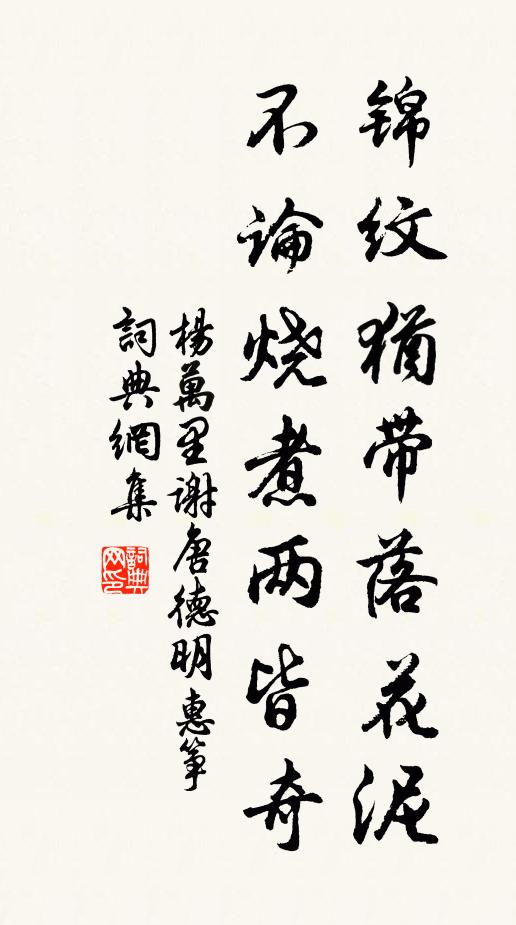 锦纹猶带落花泥
不論烧煮两皆奇
楊萬里谢唐德明惠筝
詞典網集
詞典网印